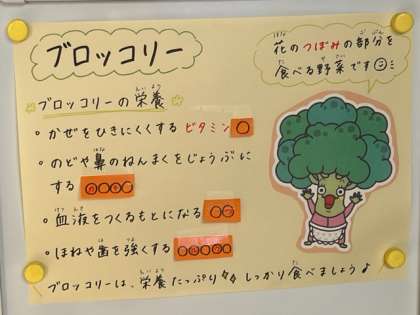 ブロッコリー
花のつぼみの部分を
食べる野菜です
ブロッコリーの栄養
・かぜをひきにくくする ビタミン○
・のどや鼻のねんまくをじょうぶに
する ○○○○
・血液をつくるもとになる ○○
・ほねや歯を強くする ○○○○○
ブロッコリーは、栄養たっぷり しっかり食べましょう♪